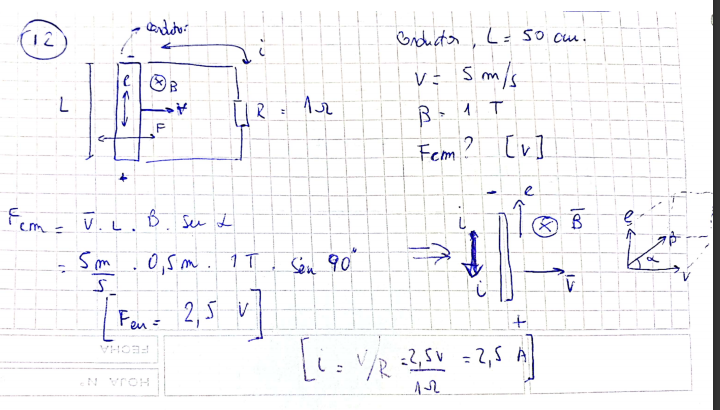 12
conductor
i
-
e
⊗ B
L
v
R = 1Ω
F
+
Conductor, L = 50 cm.
V = 5 m/s
B = 1 T
Fem? [V]
Fem = V̅ . L . B . sen α
= 5 m/s . 0,5 m . 1 T . sen 90°
[Fem = 2,5 V]
- e
i ⊗ B̅
⇒
i V̅
+
e
B
α
V
[i = V/R = 2,5V/1Ω = 2,5 A]
FECHA
HOJA Nº